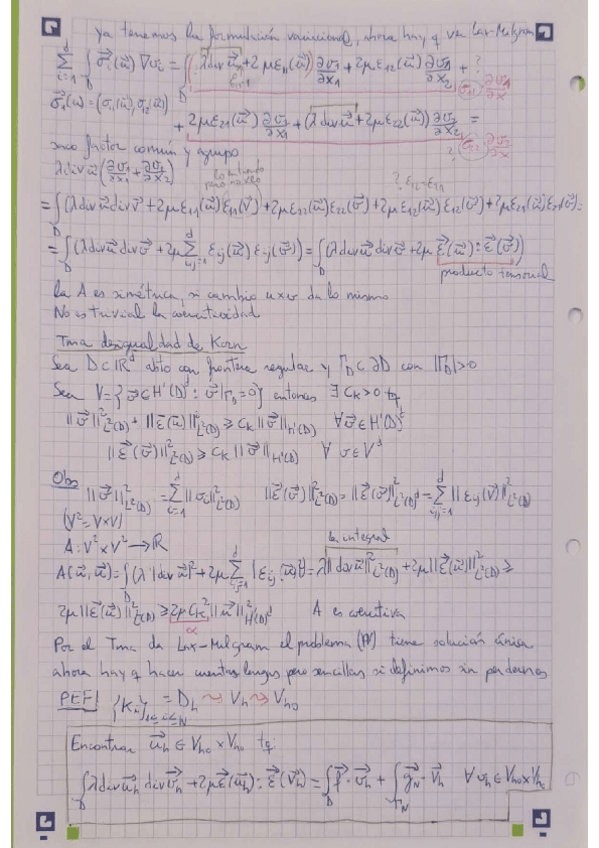 ya tenemos la formulación variacional, ahora hay q ver Lax-Milgram
∑_{i=1}^d ∫_D σ⃗_i(u⃗) ∇v_i = ∫_D (λ div u⃗ + 2μ ε_11(u⃗)) ∂v_1/∂x_1 + 2μ ε_12(u⃗) ∂v_1/∂x_2 +
σ⃗_1(u) = (σ_11(u⃗), σ_12(u⃗))
+ 2μ ε_21(u⃗) ∂v_2/∂x_1 + (λ div u⃗ + 2μ ε_22(u⃗)) ∂v_2/∂x_2 =
saco factor común y agrupo
λ div u⃗ (∂v_1/∂x_1 + ∂v_2/∂x_2)
lo entiendo pero no veo
? ε_12 = ε_21
= ∫_D (λ div u⃗ div v⃗ + 2μ ε_11(u⃗) ε_11(v⃗) + 2μ ε_22(u⃗) ε_22(v⃗) + 2μ ε_12(u⃗) ε_12(v⃗) + 2μ ε_21(u⃗) ε_21(v⃗)) =
= ∫_D (λ div u⃗ div v⃗ + 2μ ∑_{i,j=1}^d ε_ij(u⃗) ε_ij(v⃗)) = ∫_D (λ div u⃗ div v⃗ + 2μ ε⃗(u⃗) : ε⃗(v⃗))
producto tensorial
la A es simétrica, si cambio u x v da lo mismo
No es trivial la coercitividad
Tma desigualdad de Korn
Sea D ⊂ ℝ^d abto con frontera regular y Γ_D ⊂ ∂D con |Γ_D| > 0
Sea V = {v ∈ H¹(D) : v|Γ_D = 0} entonces ∃ C_K > 0 tq
||v⃗||²_{L²(D)} + ||ε⃗(v⃗)||²_{L²(D)} ≥ C_K ||v⃗||_{H¹(D)} ∀ v⃗ ∈ H¹(D)^d
||ε⃗(v⃗)||²_{L²(D)} ≥ C_K ||v⃗||_{H¹(D)} ∀ v ∈ V^d
Obs ||v⃗||²_{L²(D)} = ∑_{i=1}^d ||v_i||²_{L²(D)} ||ε⃗(v⃗)||²_{L²(D)} = ||ε⃗(v⃗)||²_{L²(D)^d} = ∑_{i,j=1}^d ||ε_ij(v)||²_{L²(D)}
(V² = V×V)
A : V² × V² → ℝ
la integral
A(u⃗, u⃗) = ∫_D (λ |div u⃗|² + 2μ ∑_{i,j=1}^d |ε_ij(u⃗)|²) = λ ||div u⃗||²_{L²(D)} + 2μ ||ε⃗(u⃗)||²_{L²(D)} ≥
2μ ||ε⃗(u⃗)||²_{L²(D)} ≥ 2μ C_K² ||u⃗||²_{H¹(D)^d} A es coercitiva
α
Por el Tma de Lax-Milgram el problema (PV) tiene solución única
ahora hay q hacer cuentas largas pero sencillas si definimos sin perdernos
PEF| {K_i}_{1≤i≤N} = D_h ⇝ V_h ⇝ V_h0
Encontrar u⃗_h ∈ V_h0 × V_h0 tq
∫_D λ div u⃗_h div v⃗_h + 2μ ε⃗(u⃗_h) : ε⃗(v⃗_h) = ∫_D f⃗ · v⃗_h + ∫_{Γ_N} g⃗_N · v⃗_h ∀ v_h ∈ V_h0 × V_h0